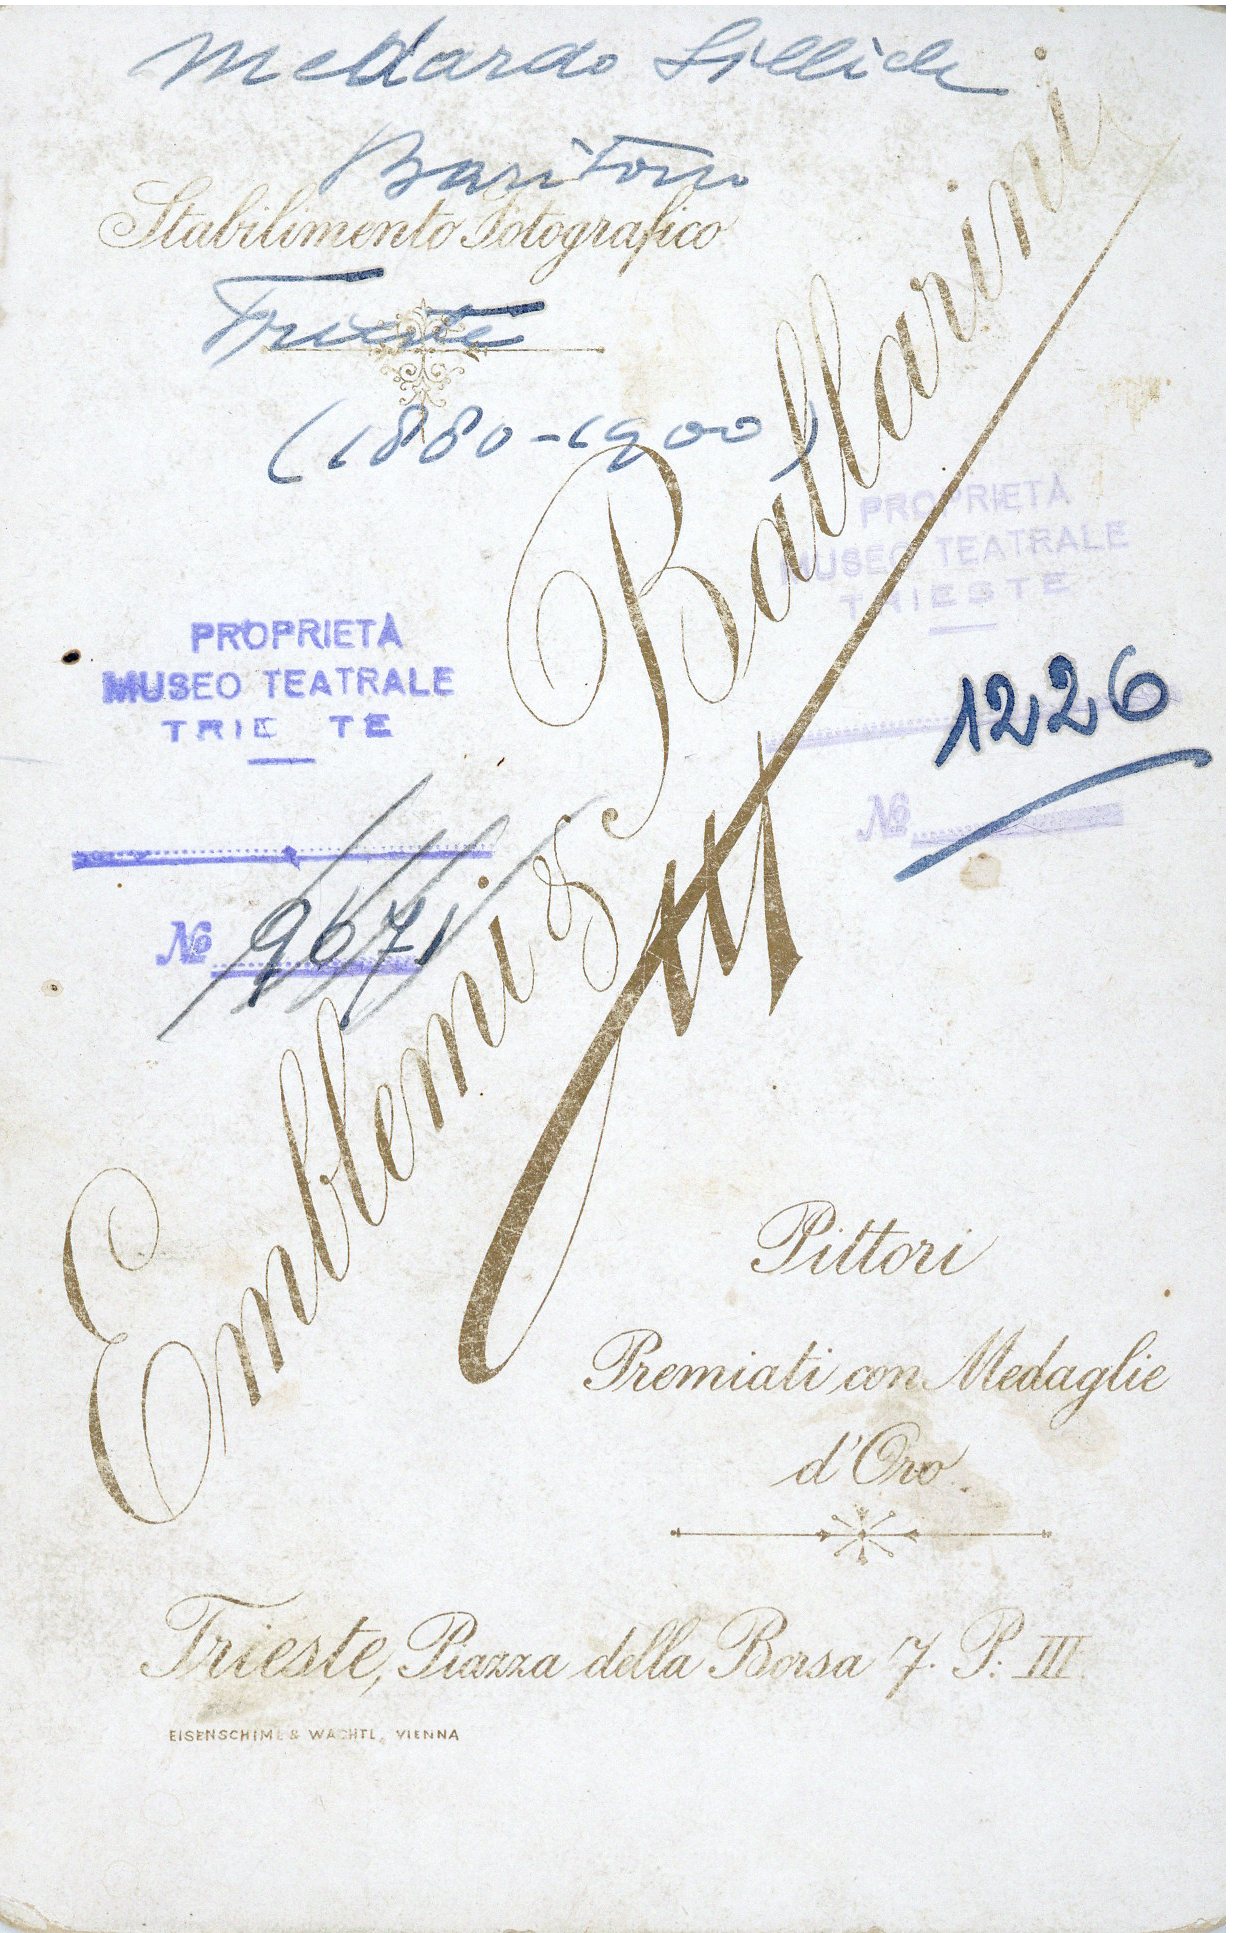 Medardo Sillich
Baritono
Stabilimento Fotografico
Trieste
(1880-1900)
Emblemi & Ballarini
PROPRIETÀ
MUSEO TEATRALE
TRIESTE
№
PROPRIETÀ
MUSEO TEATRALE
TRIE TE
№ 9671
1226
Pittori
Premiati con Medaglie
d'Oro
Trieste, Piazza della Borsa 7. P. III
EISENSCHIML & WACHTL, VIENNA